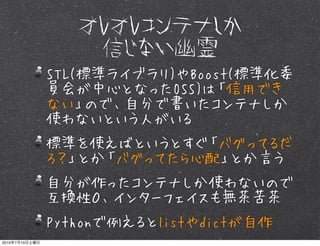 オレオレコンテナしか
信じない幽霊
STL(標準ライブラリ)やBoost(標準化委
員会が中心となったOSS)は「信用でき
ない」ので、自分で書いたコンテナしか
使わないという人がいる
標準を使えばというとすぐ「バグってるだ
ろ?」とか「バグってたら心配」とか言う
自分が作ったコンテナしか使わないので
互換性0、インターフェイスも無茶苦茶
Pythonで例えるとlistやdictが自作
2012年7月13日土曜日